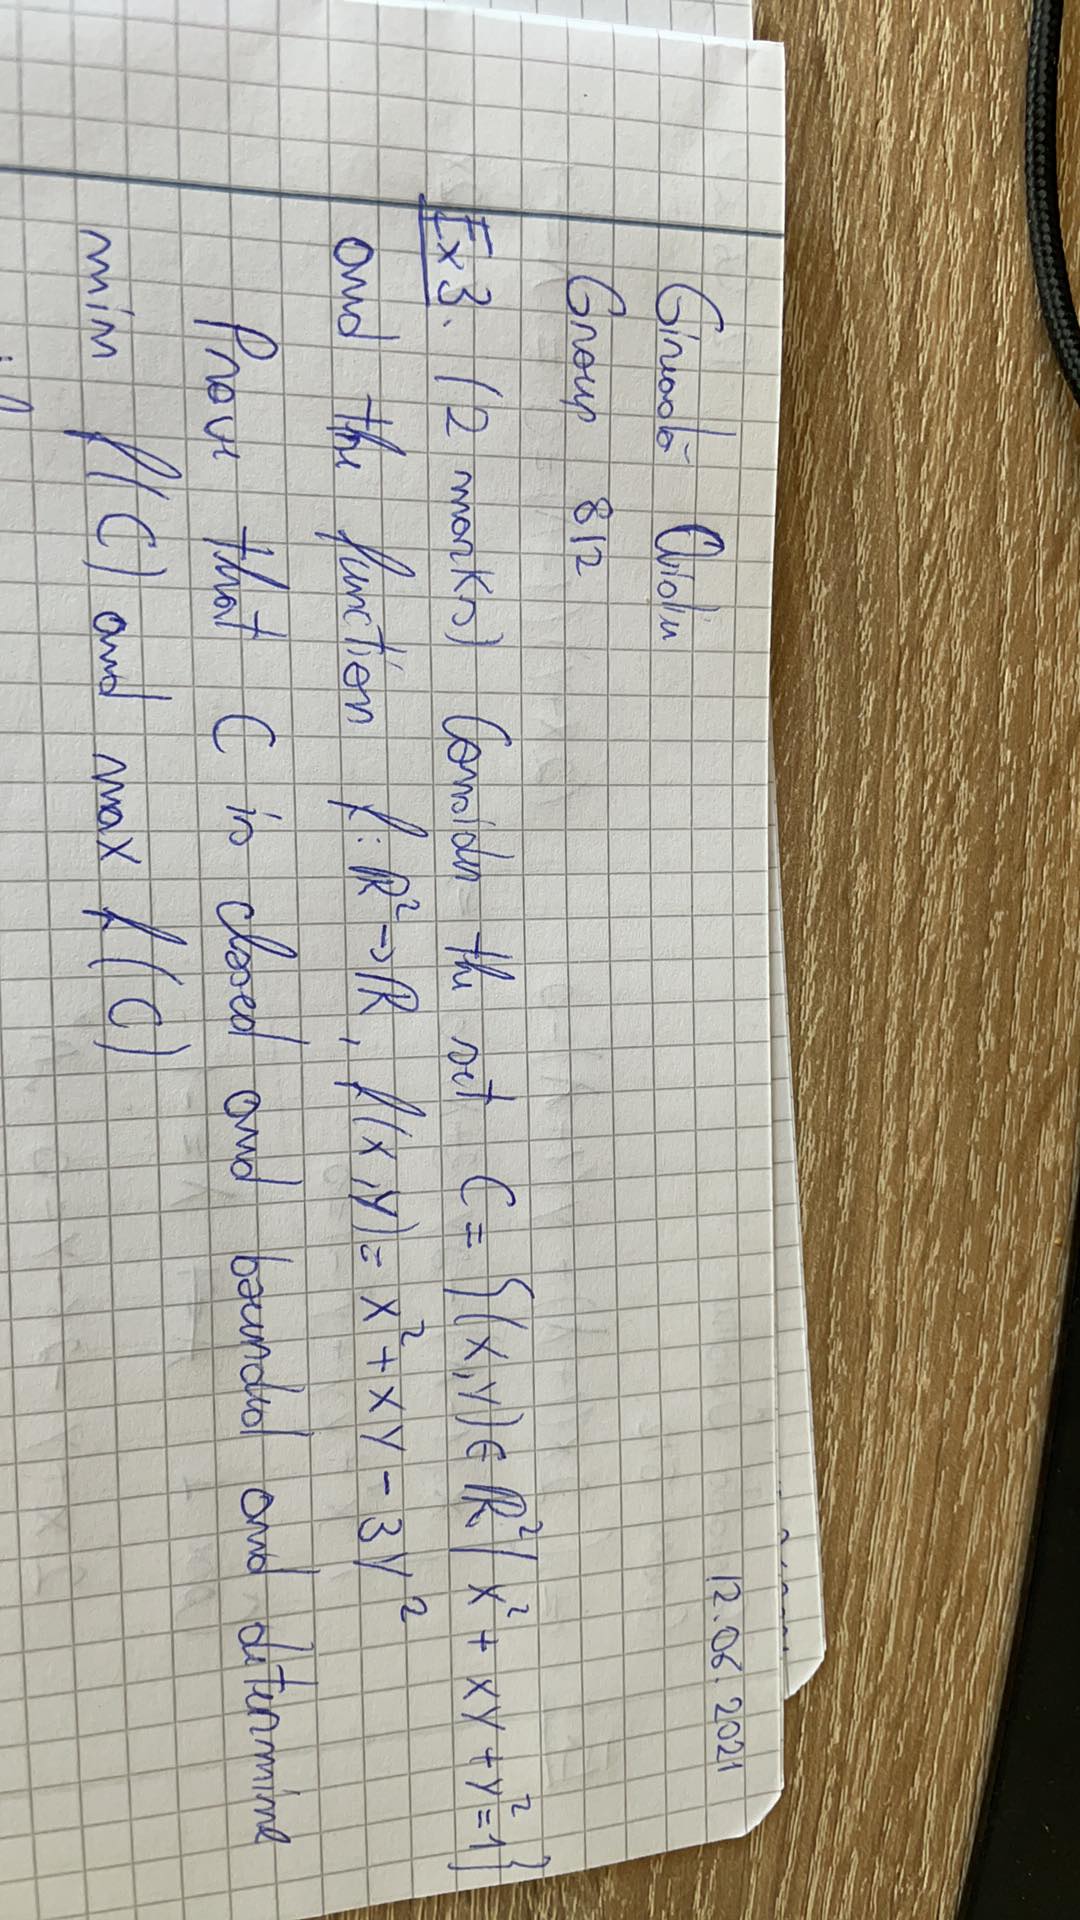 12.06.2021
Ovidiu
Group 812
Ex3. (2 marks) Consider the set C = {(x,y) ∈ ℝ² | x² + xy + y² = 1}
and the function f: ℝ² → ℝ, f(x,y) = x² + xy - 3y²
Prove that C is closed and bounded and determine
min f(C) and max f(C)